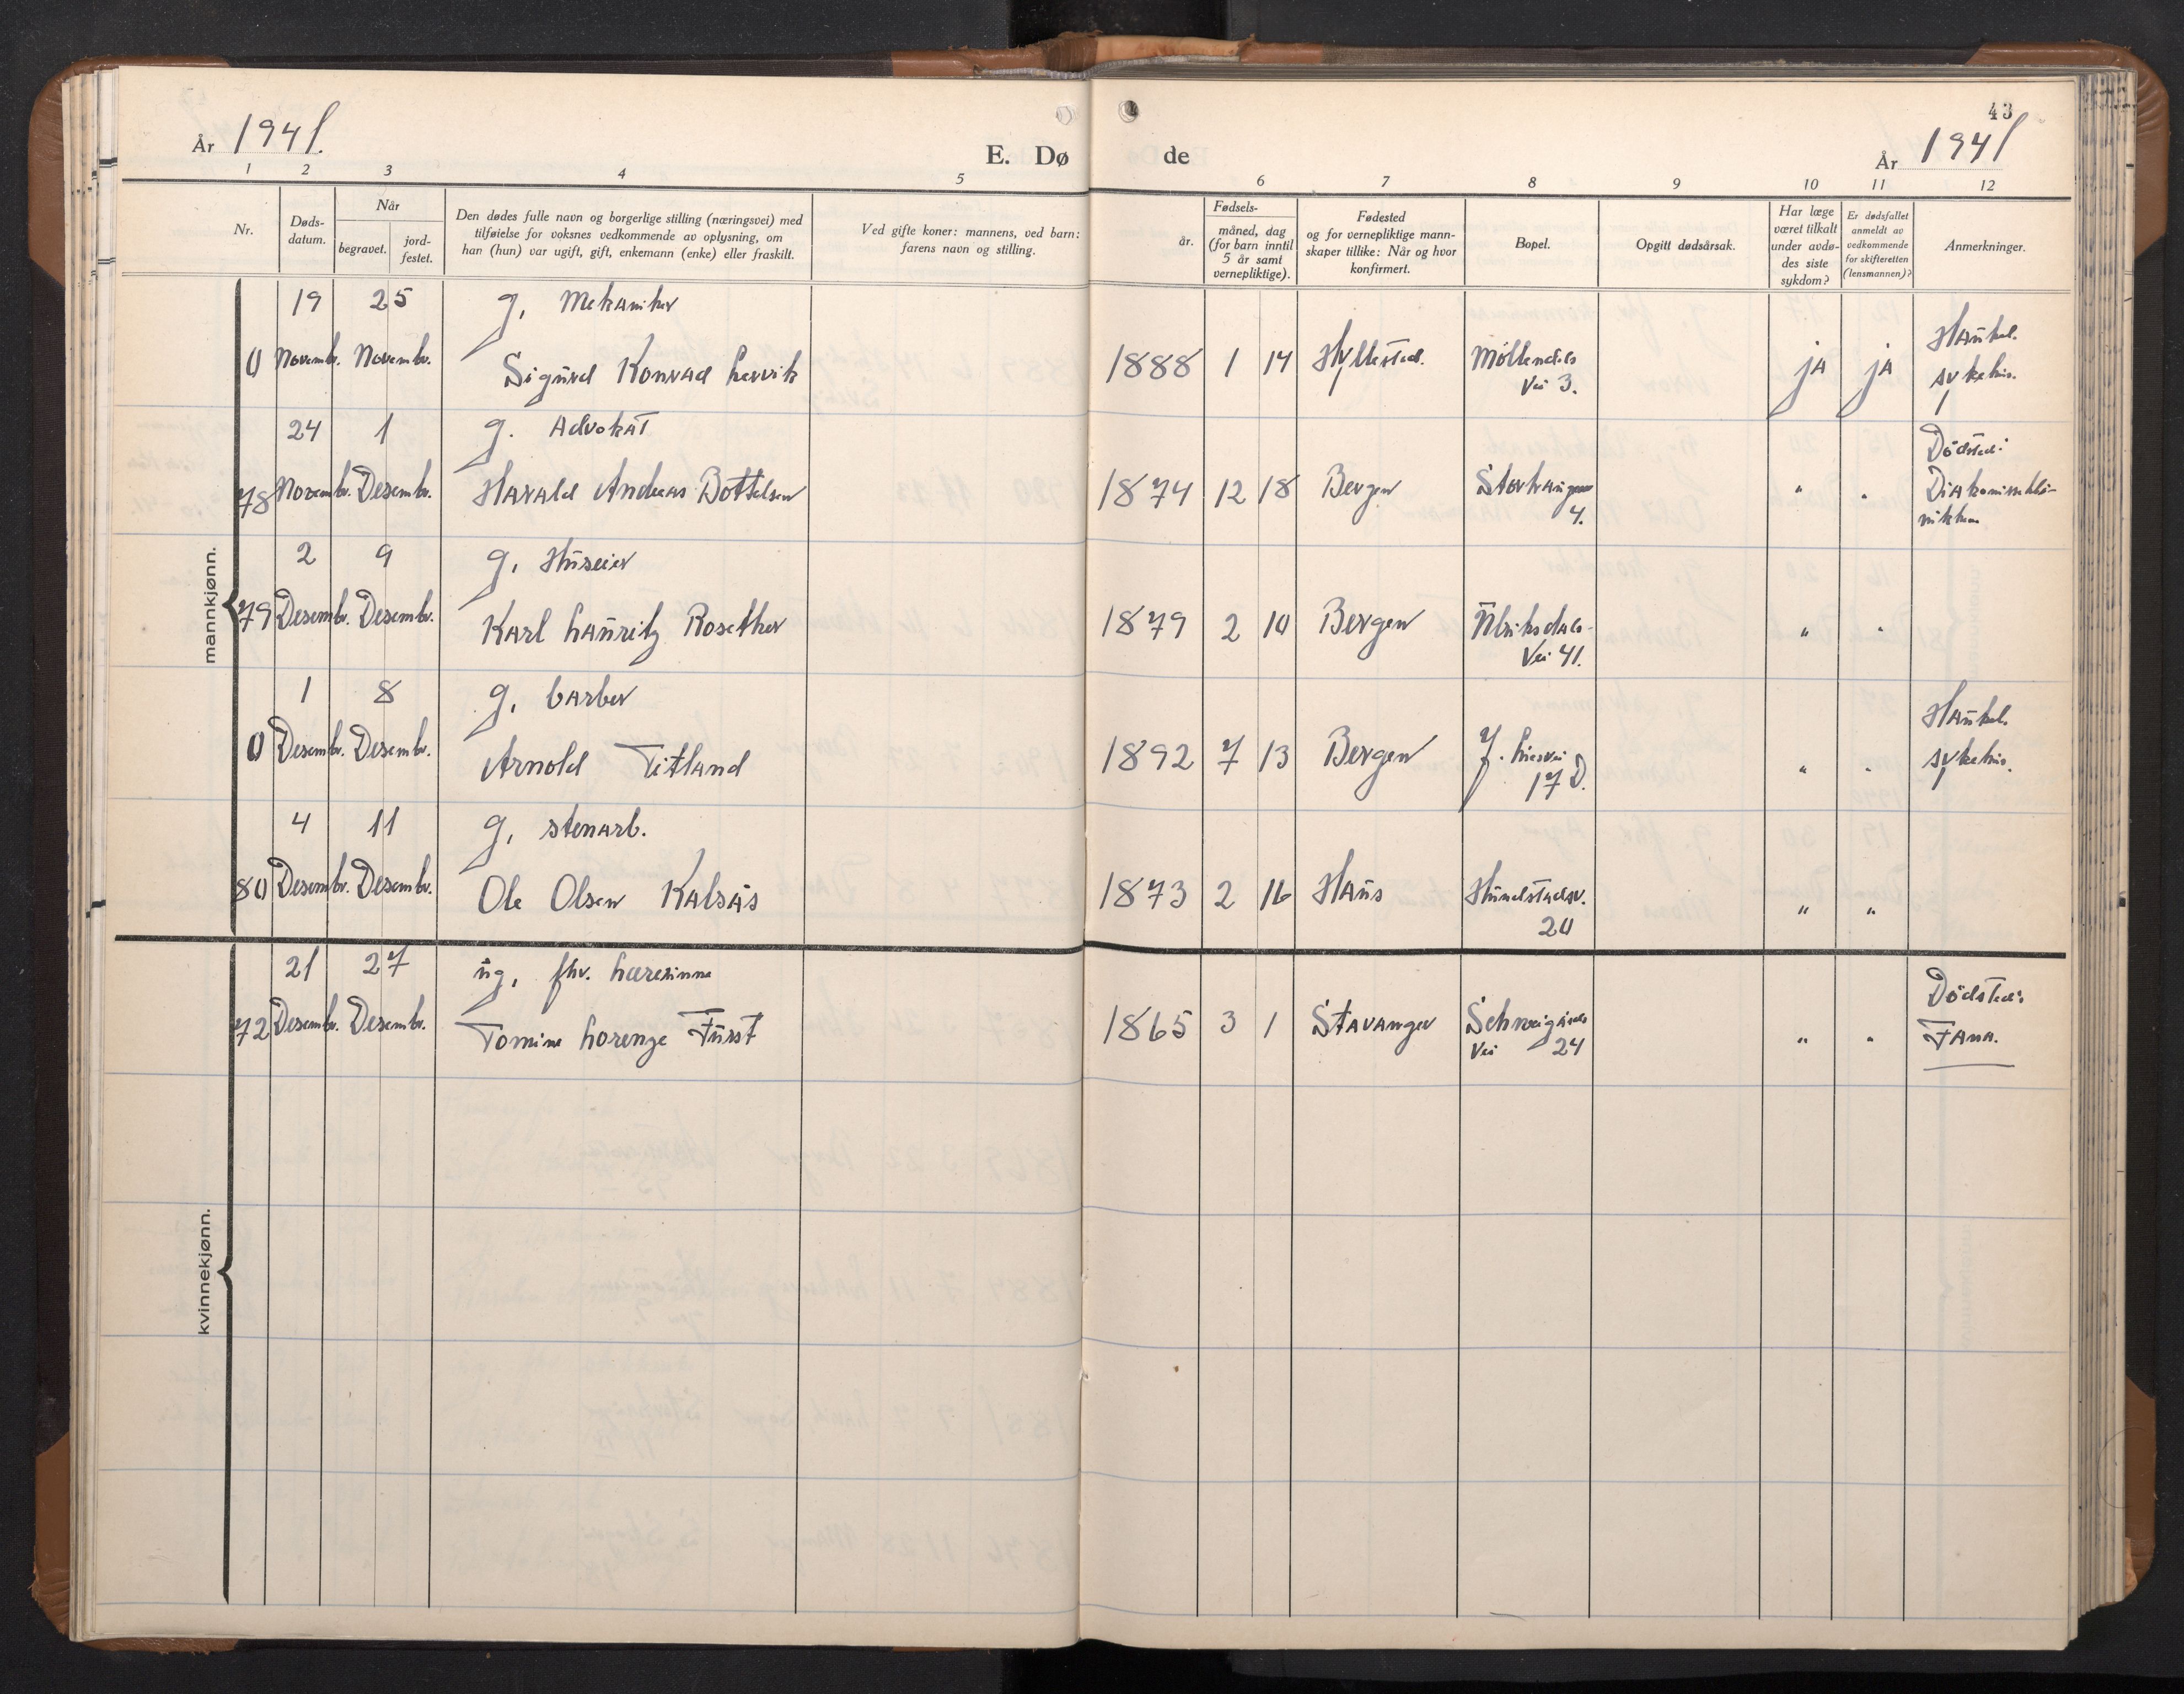 43
År 1941.
E. Dø de
År 1941
1 2 3 4 5 6 7 8 9 10 11 12
Nr.
Døds-
datum.
Når
begravet.
jord-
festet.
Den dødes fulle navn og borgerlige stilling (næringsvei) med
tilføielse for voksnes vedkommende av oplysning, om
han (hun) var ugift, gift, enkemann (enke) eller fraskilt.
Ved gifte koner: mannens, ved barn:
farens navn og stilling.
Fødsels-
år.
måned, dag
(for barn inntil
5 år samt
vernepliktige).
Fødested
og for vernepliktige mann-
skaper tillike: Når og hvor
konfirmert.
Bopel.
Opgitt dødsårsak.
Har læge
været tilkalt
under avdø-
des siste
sykdom?
Er dødsfallet
anmeldt av
vedkommende
for skifteretten
(lensmannen)?
Anmerkninger.
mannkjønn.
19 25 g. Mekaniker
0 Novembr. Novembr. Sigurd Konrad Lervik 1888 1 14 Hyllestad. Möllendals ja ja Haukel.
Vei 3. sykehus.
24 1 g. Advokat Dödsted:
78 Novembr. Desembr. Harald Andreas Bottelsen 1874 12 18 Bergen Storhaugen " " Diakonissekli-
4. nikken
2 9 g. Huseier
79 Desembr. Desembr. Karl Lauritz Rosether 1879 2 10 Bergen Ulriksdals- " "
Vei 41.
1 8 g. barber Haukel.
0 Desembr. Desembr. Arnold Titland 1892 7 13 Bergen J. Liesvei " " sykehus.
17 D.
4 11 g. stenarb.
80 Desembr. Desembr. Ole Olsen Kalsås 1873 2 16 Haus Hunstadsv. " "
20
kvinnekjønn.
21 27 ug. fhv. Lærerinne Dödsted:
72 Desembr. Desembr. Tomine Lorenze Fürst 1865 3 1 Stavanger Schweigårds " " Fana.
Vei 24